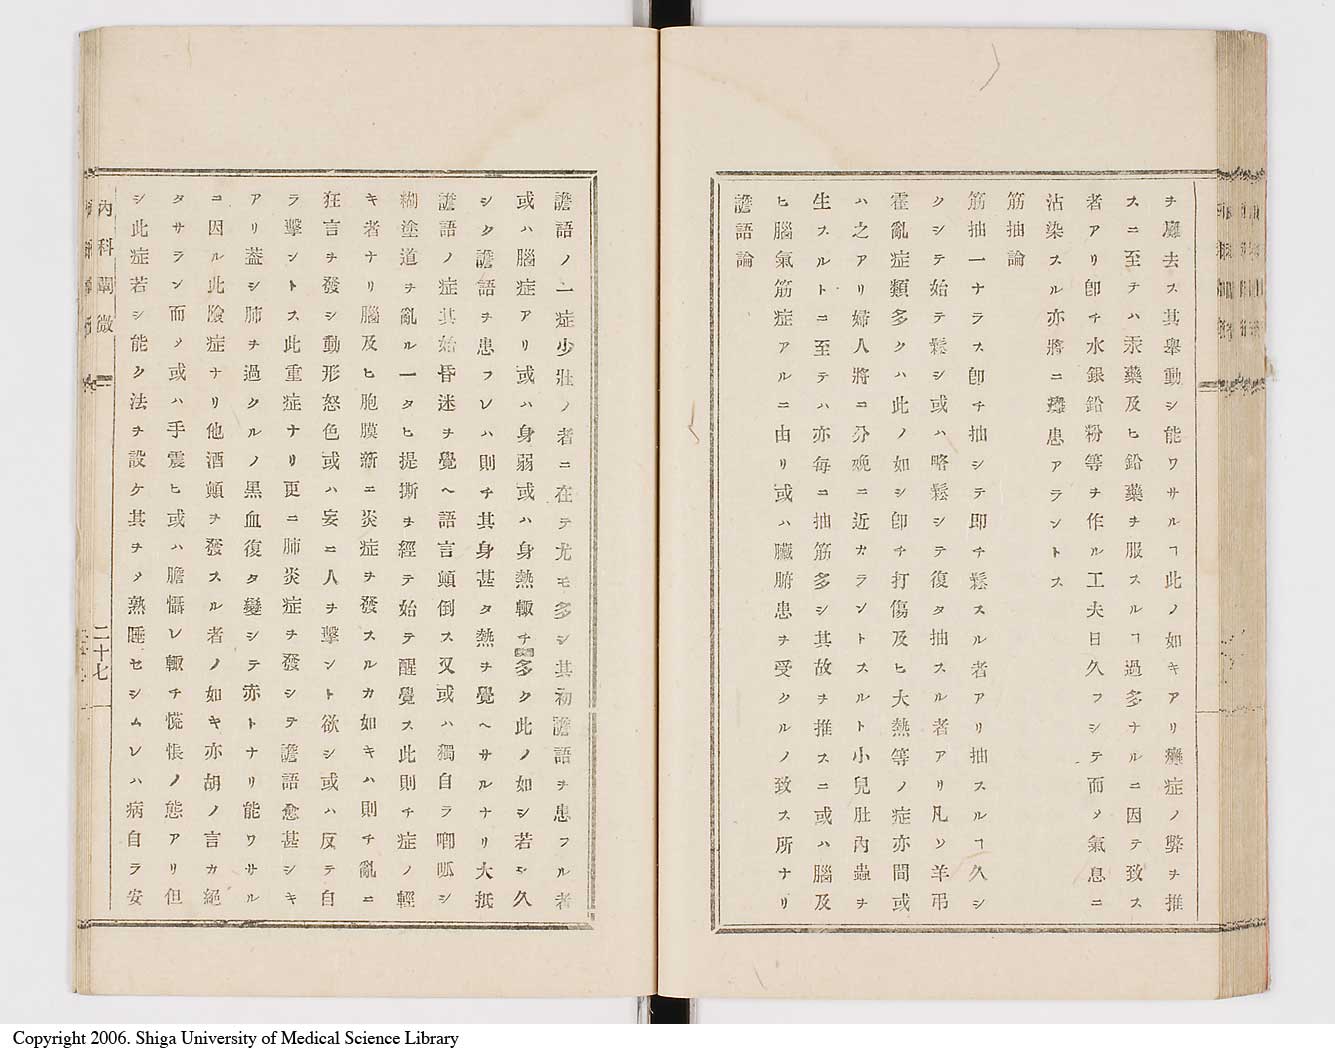 ヲ廢去ス其舉動シ能ワサルヿ此ノ如キアリ癱症ノ弊ヲ推
スニ至テハ汞藥及ヒ鉛藥ヲ服スルヿ過多ナルニ因テ致ス
者アリ卽チ水銀鉛粉等ヲ作ル工夫日久フシテ而メ氣息ニ
沾染スル亦將ニ癱患アラントス
筋抽論
筋抽一ナラス卽チ抽シテ即チ鬆スル者アリ抽スルヿ久シ
クシテ始テ鬆シ或ハ略鬆シテ復タ抽スル者アリ凡ソ羊弔
霍亂症類多クハ此ノ如シ卽チ打傷及ヒ大熱等ノ症亦間或
ハ之アリ婦人將ニ分娩ニ近カラントスルト小兒肚內蟲ヲ
生スルトニ至テハ亦每ニ抽筋多シ其故ヲ推スニ或ハ腦及
ヒ腦氣筋症アルニ由リ或ハ臟腑患ヲ受クルノ致ス所ナリ
譫語論
譫語ノ一症少壯ノ者ニ在テ尤モ多シ其初譫語ヲ患フル者
或ハ腦症アリ或ハ身弱或ハ身熱輙チ多ク此ノ如シ若シ久
シク譫語ヲ患フレハ則チ其身甚タ熱ヲ覺ヘサルナリ大抵
譫語ノ症其始昏迷ヲ覺ヘ語言顚倒ス又或ハ獨自ラ唧呱シ
糊塗道ヲ亂ル一タヒ提撕ヲ經テ始テ醒覺ス此則チ症ノ輕
キ者ナリ腦及ヒ胞膜新ニ炎症ヲ發スルカ如キハ則チ亂ニ
狂言ヲ發シ動形怒色或ハ妄ニ人ヲ擊ント欲シ或ハ反テ自
ラ擊ントス此重症ナリ更ニ肺炎症ヲ發シテ譫語愈甚シキ
アリ蓋シ肺ヲ過クルノ黑血復タ變シテ赤トナリ能ワサル
ニ因ル此陰症ナリ他酒顚ヲ發スル者ノ如キ亦胡ノ言カ絕
タサラン而メ或ハ手震ヒ或ハ膽懾レ輙チ慌悵ノ態アリ但
シ此症若シ能ク法ヲ設ケ其ヲメ熟睡セシムレハ病自ラ安
內科闡微
二十七
Copyright 2006. Shiga University of Medical Science Library